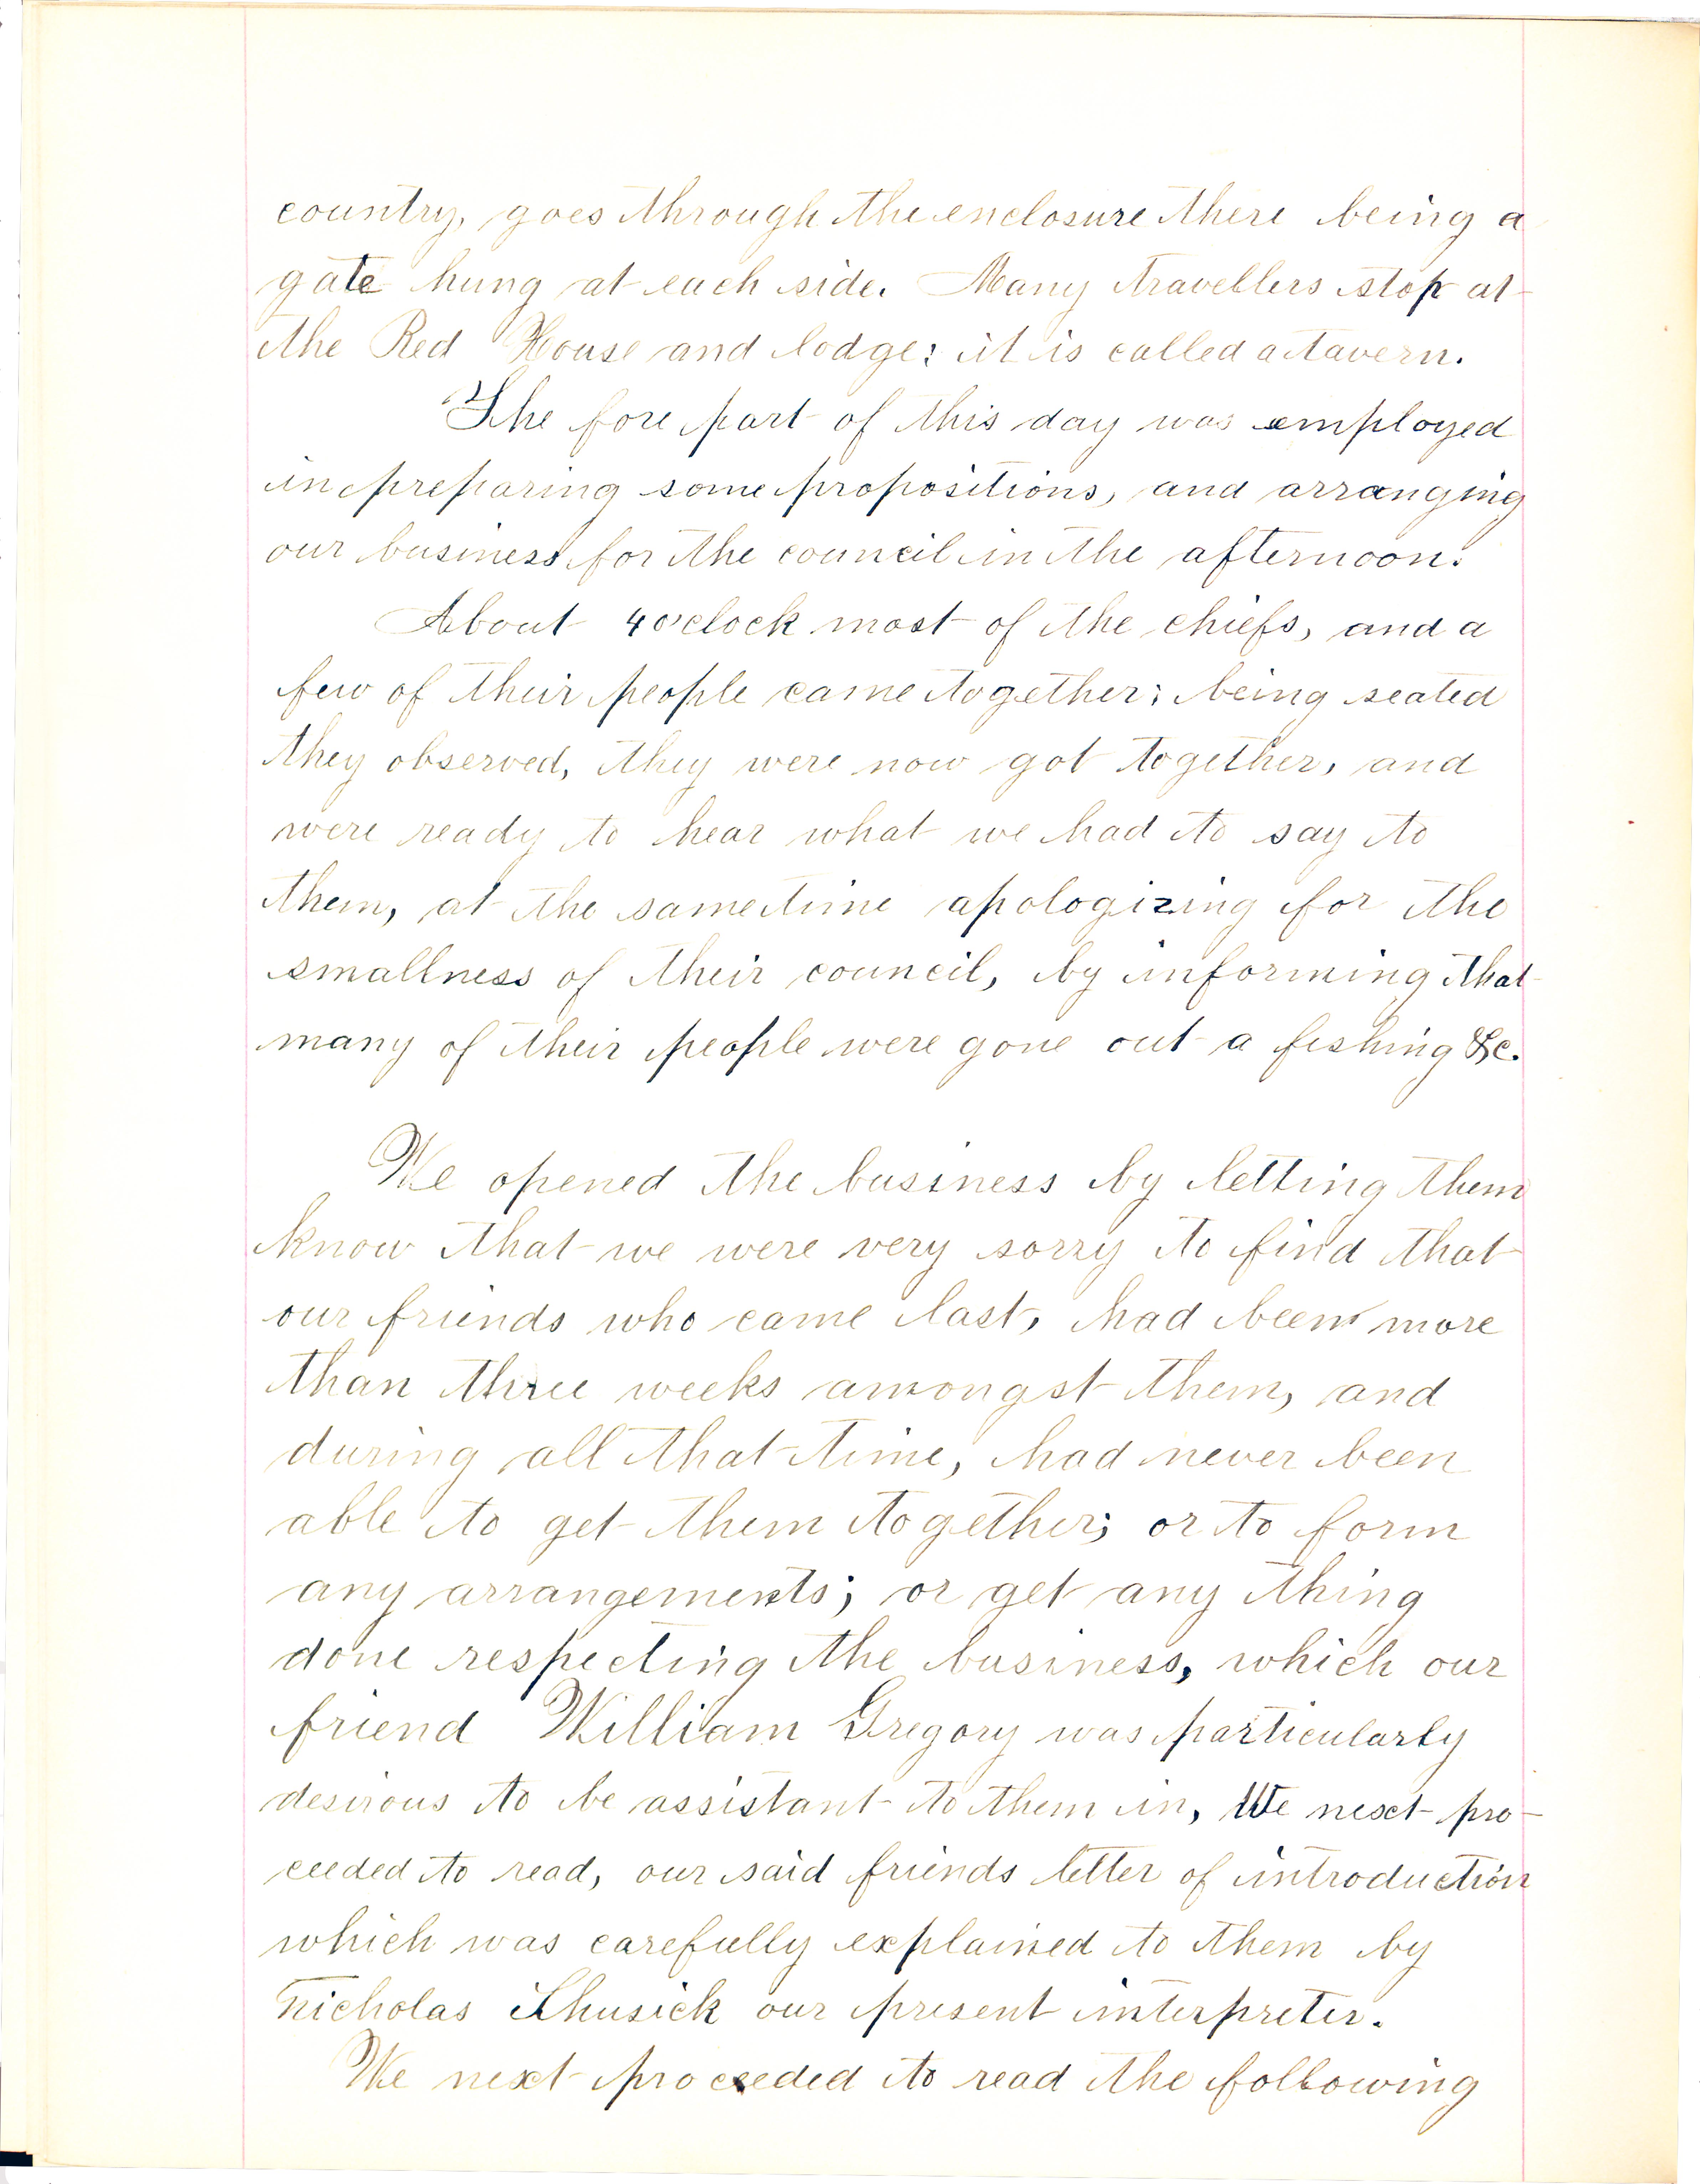 country, goes through the enclosure there being a
gate hung at each side. Many travellers stop at
the Red House and lodge; it is called a tavern.
The fore part of this day was employed
in preparing some propositions, and arranging
our business for the council in the afternoon.
About 4 o'clock most of the chiefs, and a
few of their people came together; being seated
they observed, they were now got together, and
were ready to hear what we had to say to
them, at the same time apologizing for the
smallness of their council, by informing that
many of their people were gone out a fishing &c.
We opened the business by letting them
know that we were very sorry to find that
our friends who came last, had been more
than three weeks amongst them, and
during all that time, had never been
able to get them together; or to form
any arrangements; or get any thing
done respecting the business, which our
friend William Gregory was particularly
desirous to be assistant to them in, We next pro-
ceeded to read, our said friends letter of introduction
which was carefully explained to them by
Nicholas Khusick our present interpreter.
We next proceeded to read the following